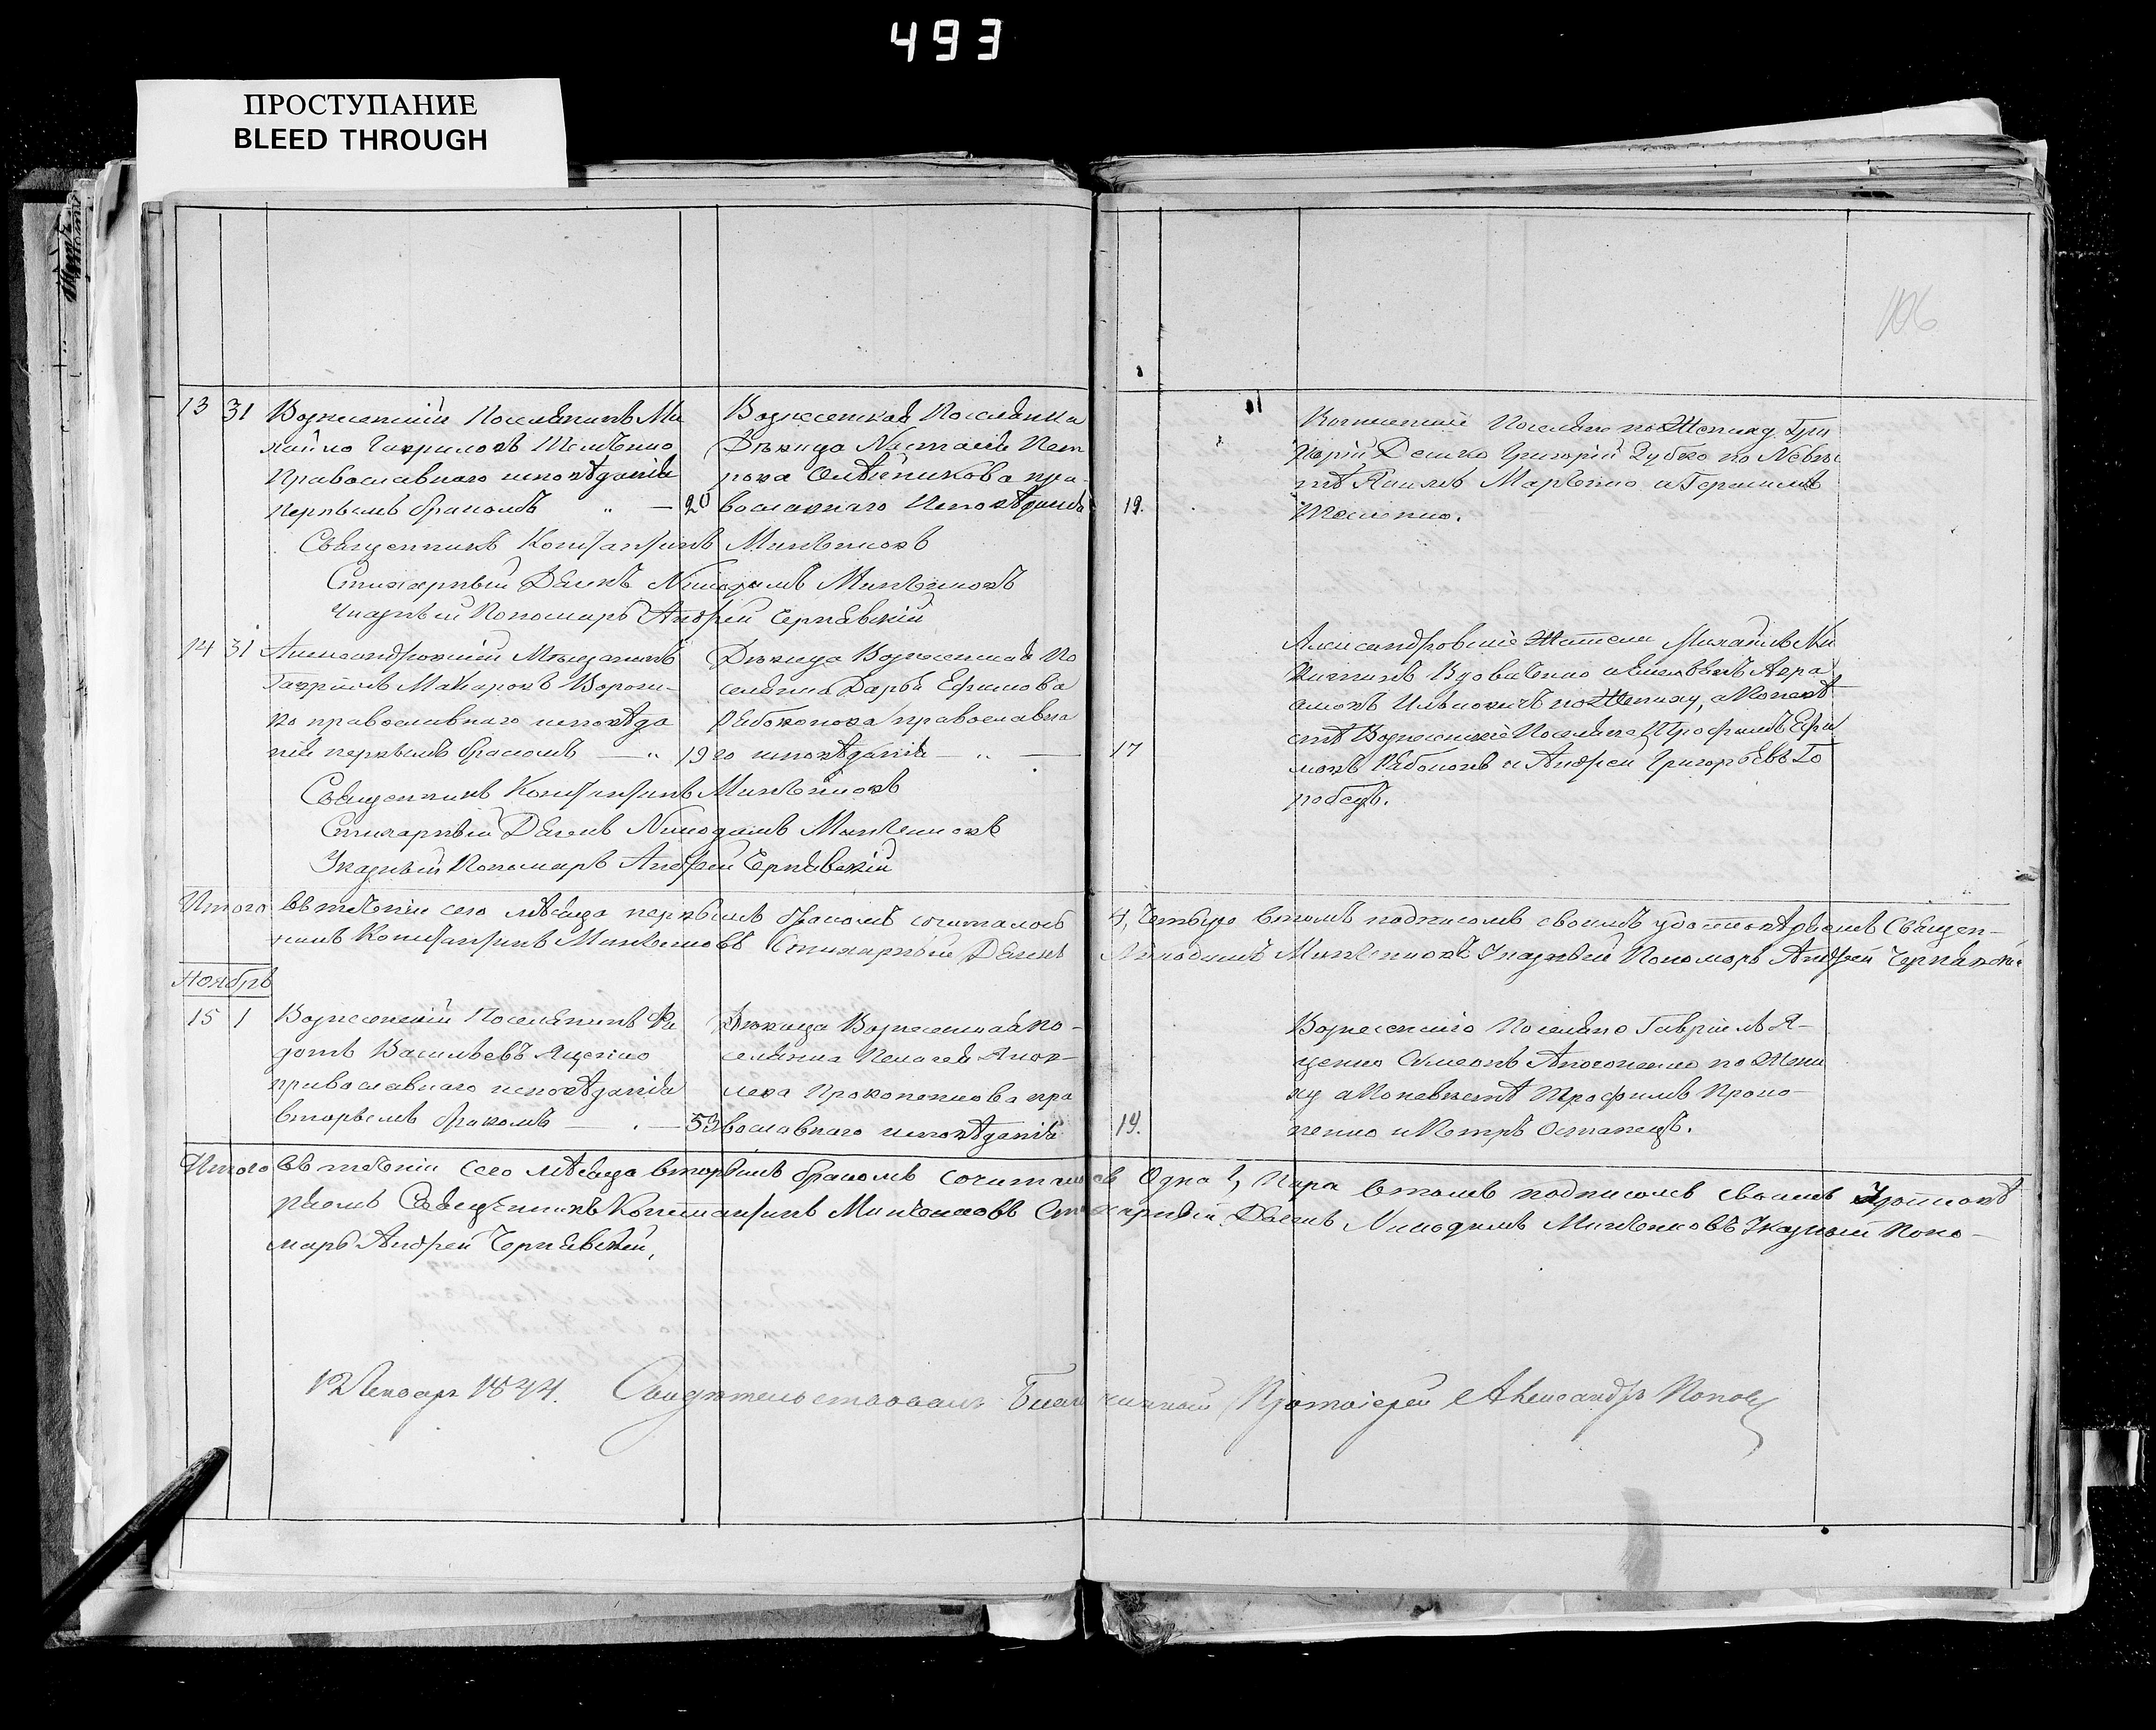 493
ПРОСТУПАНИЕ
BLEED THROUGH
106
13 31 Вознесенскій Поселянинъ Ми
хайло Гавриловъ
Православнаго исповѣданія
первымъ бракомъ „ — 20
Вознесенская Поселянка
Дѣвица Наталія Пет
рова Олѣйникова пра-
вославнаго Исповѣданія
19.
Вознесенскіе Поселяне по Жениху Гри
горій Григорій Зубко по Невѣс
тѣ Марченко и Герасимъ
Священникъ Константинъ Минченковъ
Стихарный Дьячекъ Никодимъ Минченковъ
Указный Пономарь Андрей Чернявскій
14 31 Александровскій Мѣщанинъ
Гавріилъ Макаровъ Ворони-
ко православнаго исповѣда
нія первымъ бракомъ — „ 19
Дѣвица Вознесенская По
селянка Дарья Ефимова
Рябоконова православна
го исповѣданія — „ —
17
Александровскіе Жители Михаилъ Ни
Вдовиченко и Авра
амовъ по Жениху, а По невѣ
стѣ Вознесенскіе Поселяне Трофимъ Ефи
мовъ Рябоконь и Андрей Григорьевъ Го
робецъ.
Священникъ Константинъ Минченковъ
Стихарный Дьячекъ Никодимъ Минченковъ
Указный Пономарь Андрей Чернявскій
Итого въ теченіи сего мѣсяца первымъ бракомъ сочталось 4, Четыре въ томъ подписомъ своимъ удостовѣряемъ Священ-
никъ Константинъ Минченковъ Стихарный Дьячекъ Никодимъ Минченковъ Указный Пономарь Андрей Чернявскій
Ноябрь
15 1 Вознесенскій Поселянинъ Фе
дотъ Васильевъ Яценко
православнаго исповѣданія
вторымъ бракомъ — „ — 53
Дѣвица Вознесенская По-
селянка Пелагея Яков-
лева Прокопенкова пра
вославнаго исповѣданія
19.
Вознесенскіе Поселяне Гавріилъ Я-
ценко Симеонъ по Жени
ху а По невестѣ Трофимъ Проко-
пенко и Петръ Остапецъ.
Итого въ теченіи сего мѣсяца вторымъ бракомъ сочиталось Одна 1, Пара въ томъ подписомъ своимъ Удостовѣ
ряемъ Священникъ Константинъ Минченковъ Стихарный Дьячекъ Никодимъ Минченковъ Указный Поно-
марь Андрей Чернявскій,
12 Генваря 1844. Свидѣтельствовалъ Благочинный Протоіерей Александръ Поповъ